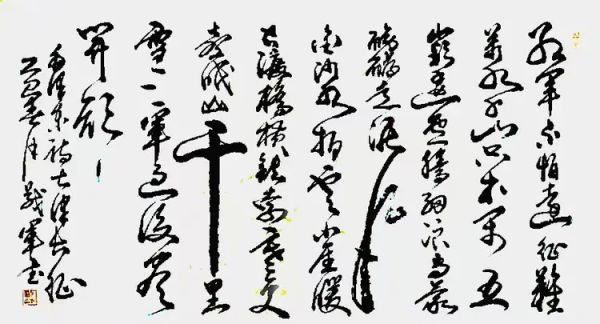 红軍不怕遠征難
萬水千山只等閒五
嶺逶迤騰細浪烏蒙
磅礴走泥丸
金沙水拍雲崖暖
大渡橋橫鐵索寒更
喜岷山千里
雪三軍過後盡
開顏
毛澤東詩七律長征
春月 軍書